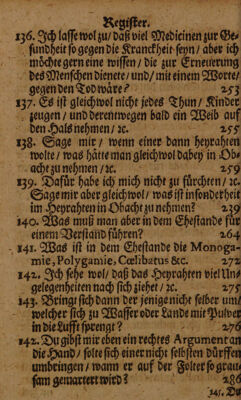 Register.
136. Ich lasse wol zu/ daß viel Medicinen zur Ge-
sundheit so gegen die Kranckheit seyn/ aber ich
möchte gern eine wissen/ die zur Erneuerung
des Menschen dienete/ und/ mit einem Worte/
gegen den Tod wäre? 253
137. Es ist gleichwol nicht jedes Thun/ Kinder
zeugen/ und derentwegen bald ein Weib auf
den Hals nehmen/ ⁊c. 255
138. Sage mir/ wenn einer dann heyrahten
wolte/ was hätte man gleichwol dabey in Ob-
acht zu nehmen/ ⁊c. 259
139. Dafür habe ich mich nicht zu fürchten/ ⁊c.
Sage mir aber gleichwol/ was ist insonderheit
im Heyrahten in Obacht zu nehmen? 239
140. Was muß man aber in dem Ehestande für
einem Verstand führen? 264
141. Was ist in dem Ehestande die Monoga-
mie, Polygamie, Cœlibatus &c. 272
142. Ich sehe wol/ daß das Heyrahten viel Un-
gelegenheiten nach sich ziehet/ ⁊c. 275
143. Bringt sich dann der jenige nicht selber um/
welcher sich zu Wasser oder Lande mit Pulver
in die Lufft sprengt? 276
142. Du gibst mir eben ein rechtes Argument an
die Hand/ solte sich einer nicht selbsten dürffen
umbringen/ wann er auf der Folter so grau-
sam gemartert wird? 286
145. Du